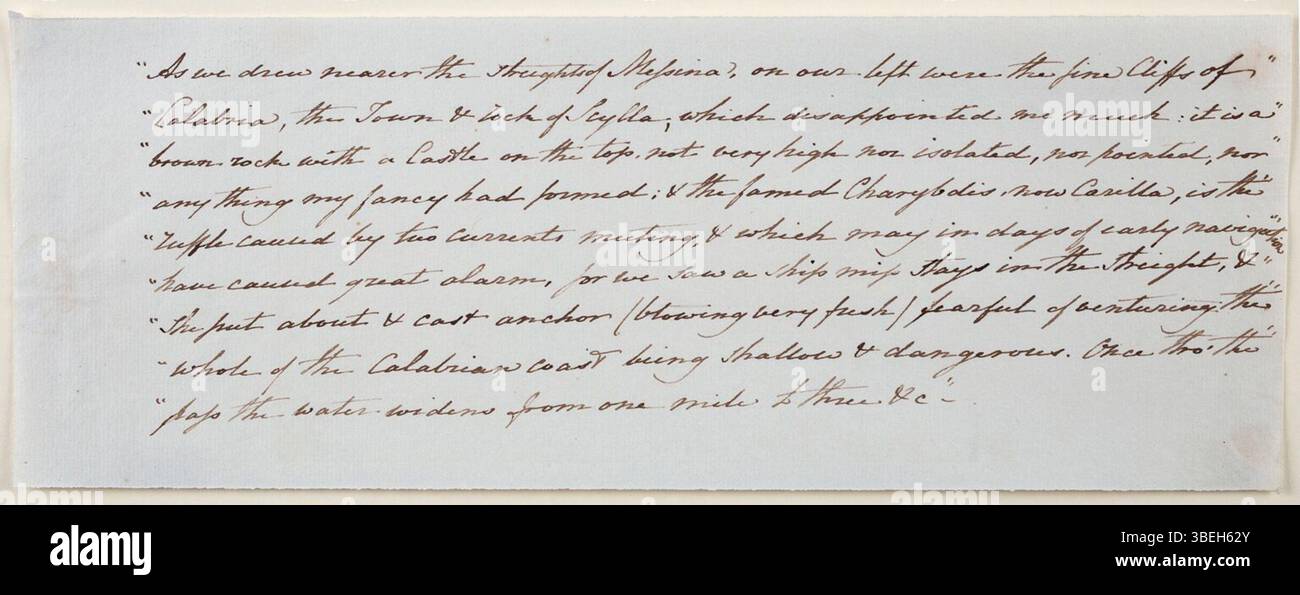 "As we drew nearer the streights of Messina, on our left were the fine Cliffs of"
"Calabria, the Town & rock of Scylla, which disappointed me much: it is a"
"brown rock with a Castle on the top, not very high nor isolated, nor pointed, nor"
"anything my fancy had formed; & the famed Charybdis, now Carilla, is the"
"ruffle caused by two currents meeting, & which may in days of early navigation"
"have caused great alarm, for we saw a ship miss stays in the streight, &"
"she put about & cast anchor (blowing very fresh) fearful of venturing: the"
"whole of the Calabrian coast being shallow & dangerous. Once thro' the"
"pass the water widens from one mile to three &c"–
alamy
Image ID: 3BEH62Y
www.alamy.com